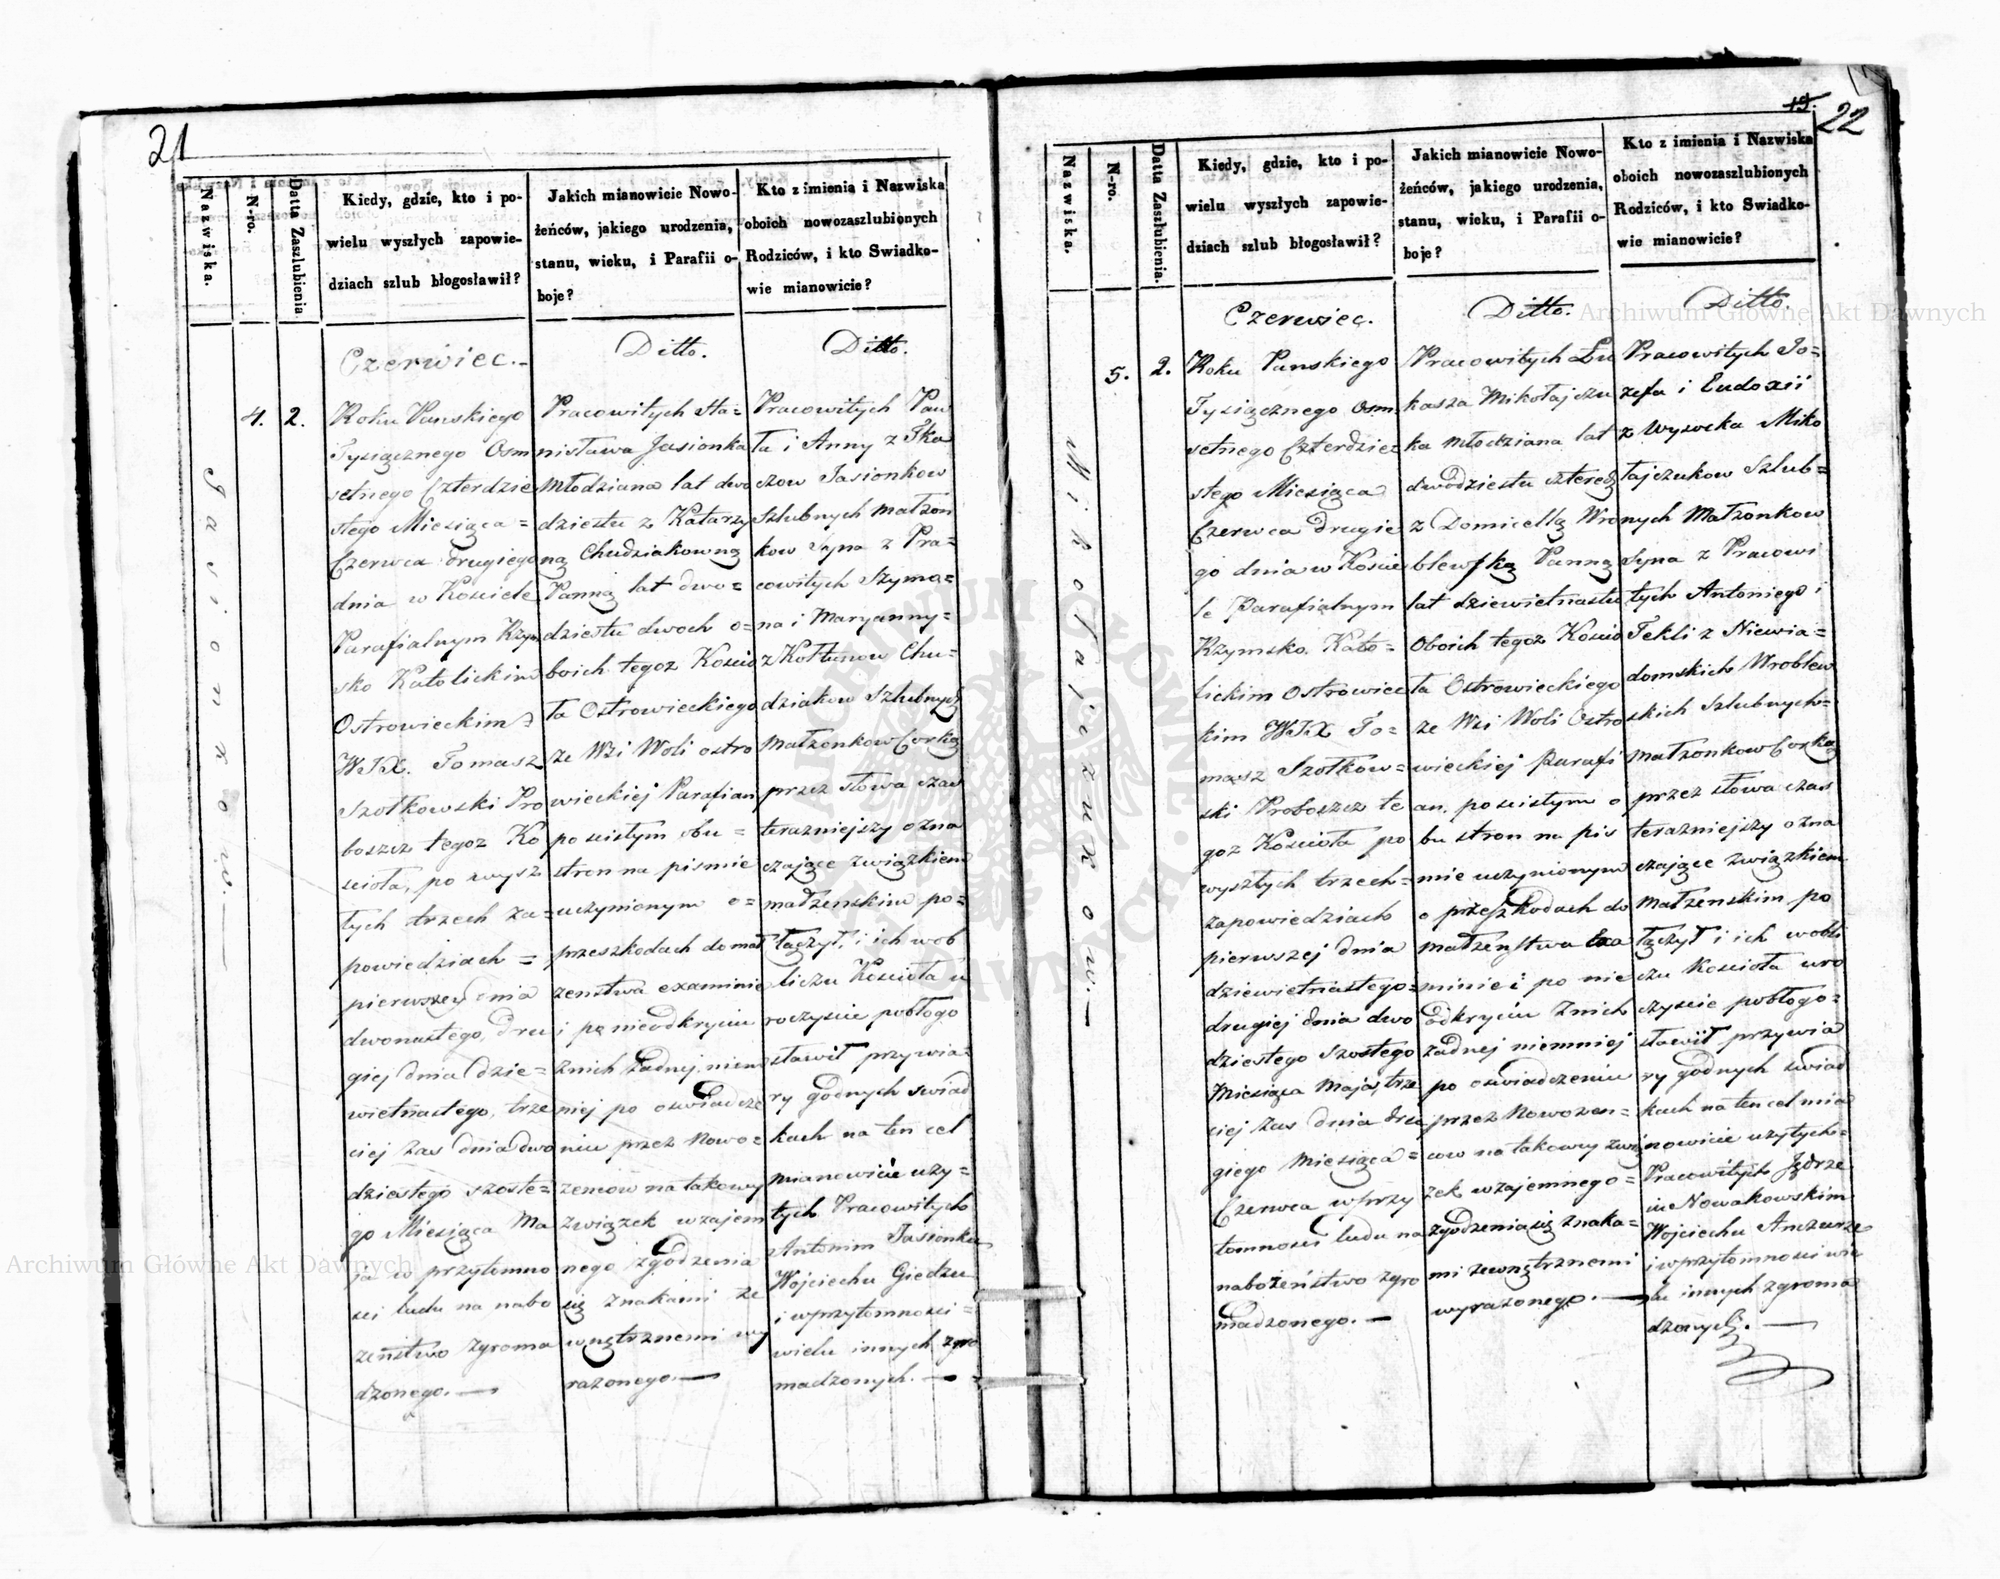 21
Nazwiska.
N-ro.
Datta Zaszlubienia.
Kiedy, gdzie, kto i po-
wielu wyszłych zapowie-
dziach szlub błogosławił?
Jakich mianowicie Nowo-
żeńców, jakiego urodzenia,
stanu, wieku, i Parafii o-
boje?
Kto z imienia i Nazwiska
oboich nowozaszlubionych
Rodziców, i kto Swiadko-
wie mianowicie?
Jasionkow.
4.
2.
Czerwiec.
Roku Panskiego
Tysiącznego Osm
setnego Czterdzie
stego Miesiąca =
Czerwca drugiego
dnia w Kosciele
Parafialnym Rzym
sko Katolickim
Ostrowieckim
WJX. Tomasz
Szotkowski Pro
boszcz tegoz Ko
sciola, po wysz
łych trzech za=
powiedziach =
pierwszej dnia
dwonastego, dru
giej dnia dzie=
wietnastego, trze
ciej zas dnia dwo
dziestego szoste=
go Miesiąca Ma
ja w przytomno
sci ludu na nabo
zeństwo zgroma
dzonego. —
Ditto.
Pracowitych Sta=
nisława Jasionka
Młodziana lat dwa
dziestu z Katarzy
ną Chudziakowną
Panną lat dwo=
dziestu dwoch o=
boich tegoz Koscio
ła Ostrowieckiego
ze Wsi Woli ostro
wieckiej Parafian
po scistym obu =
stron na pismie
uczynionym o=
przeszkodach do mał
zenstwa examinie
i po nieodkryciu
z nich zadnej, niem
niej po oswiadcze
niu przez Nowo=
zencow na takowy
związek wzajem
nego zgodzenia
się znakami ze
wnętrznemi wy
razonego. —
Ditto.
Pracowitych Paw
ła i Anny z Tka
czow Jasionkow
Szlubnych Małzon
kow Syna z Pra=
cowitych Szymo=
na i Maryanny=
z Kołtunow Chu=
dziakow Szlubnych
Małzonkow Corką
przez słowa czas
terazniejszy ozna
czające związkiem
małzenskim po=
łączył, i ich wob
liczu Kosciola u
roczyscie pobłogo
sławił przy wia=
ry godnych swiad
kach na ten cel
mianowicie uzy=
tych Pracowitych
Antonim Jasionku
Wojciechu Giedzu
i w przytomnosci =
wielu innych zgro
madzonych. —
19.
22
Nazwiska.
N-ro.
Datta Zaszlubienia.
Kiedy, gdzie, kto i po-
wielu wyszłych zapowie-
dziach szlub błogosławił?
Jakich mianowicie Nowo-
żeńców, jakiego urodzenia,
stanu, wieku, i Parafii o-
boje?
Kto z imienia i Nazwiska
oboich nowozaszlubionych
Rodziców, i kto Swiadko-
wie mianowicie?
Mikołajczukow. —
5.
2.
Czerwiec.
Roku Panskiego
Tysiącznego Osm
setnego Czterdzie
stego Miesiąca
Czerwca drugie
go dnia w Koscie
le Parafialnym
Rzymsko Kato=
lickim Ostrowiec
kim WJX To=
masz Szotkow=
ski Proboszcz te
goz Kosciola po
wyszłych trzech=
zapowiedziach
pierwszej dnia
dziewietnastego=
drugiej dnia dwo
dziestego szostego
Miesiąca Maja, trze
ciej zas dnia dru
giego Miesiąca =
Czerwca w przy
tomnosci ludu na
nabożeństwo zgro
madzonego. —
Ditto.
Pracowitych Łu
kasza Mikołajczu
ka Młodziana lat
dwódziestu szterech
z Domicellą Wro
blewską Panną
lat dziewietnastu
Oboich tegoz Koscio
ła Ostrowieckiego
ze Wsi Woli Ostro
wieckiej Parafi
an. po scistym o
bu stron na pis
mie uczynionym
o przeszkodach do
Małzenstwa Exa
minie i po nie
odkryciu z nich
zadnej niemniej
po oswiadczeniu
przez Nowozen=
cow na takowy zwią
zek wzajemnego=
zgodzenia się znaka=
mi zewnętrznemi
wyrazonego. —
Ditto.
Pracowitych Jo=
zefa i Eudoxii
z Wysocka Miko
łajczukow Szlub=
nych Małzonkow
Syna z Pracowi
tych Antoniego i
Tekli z Niewia=
domskich Wroblew
skich Szlubnych=
Małzonkow Corką
przez słowa czas
terazniejszy ozna
czające związkiem
Małzenskim po
łączył i ich wobli
czu Kosciola uro
czyscie pobłogo=
sławił przy wia
ry godnych swiad
kach na ten cel mia
nowicie uzytych=
Pracowitych Jędrze
iu Nowakowskim
Wojciechu
i w przytomnosci wie
lu innych zgroma
dzonych. —
Archiwum Główne Akt Dawnych
Archiwum Główne Akt Dawnych
ARCHIWUM GŁÓWNE AKT DAWNYCH